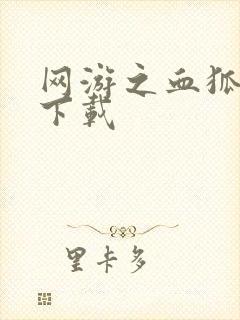 网游之血狐
下载
里卡多